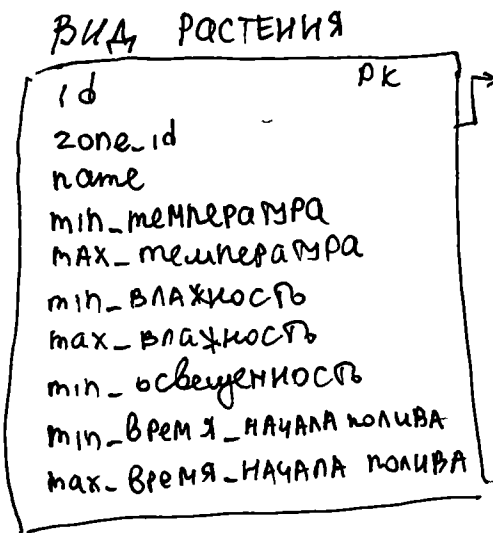 ВИД РАСТЕНИЯ
id PK
zone_id
name
min_температура
max_температура
min_влажность
max_влажность
min_освещенность
min_время_начала полива
max_время_начала полива